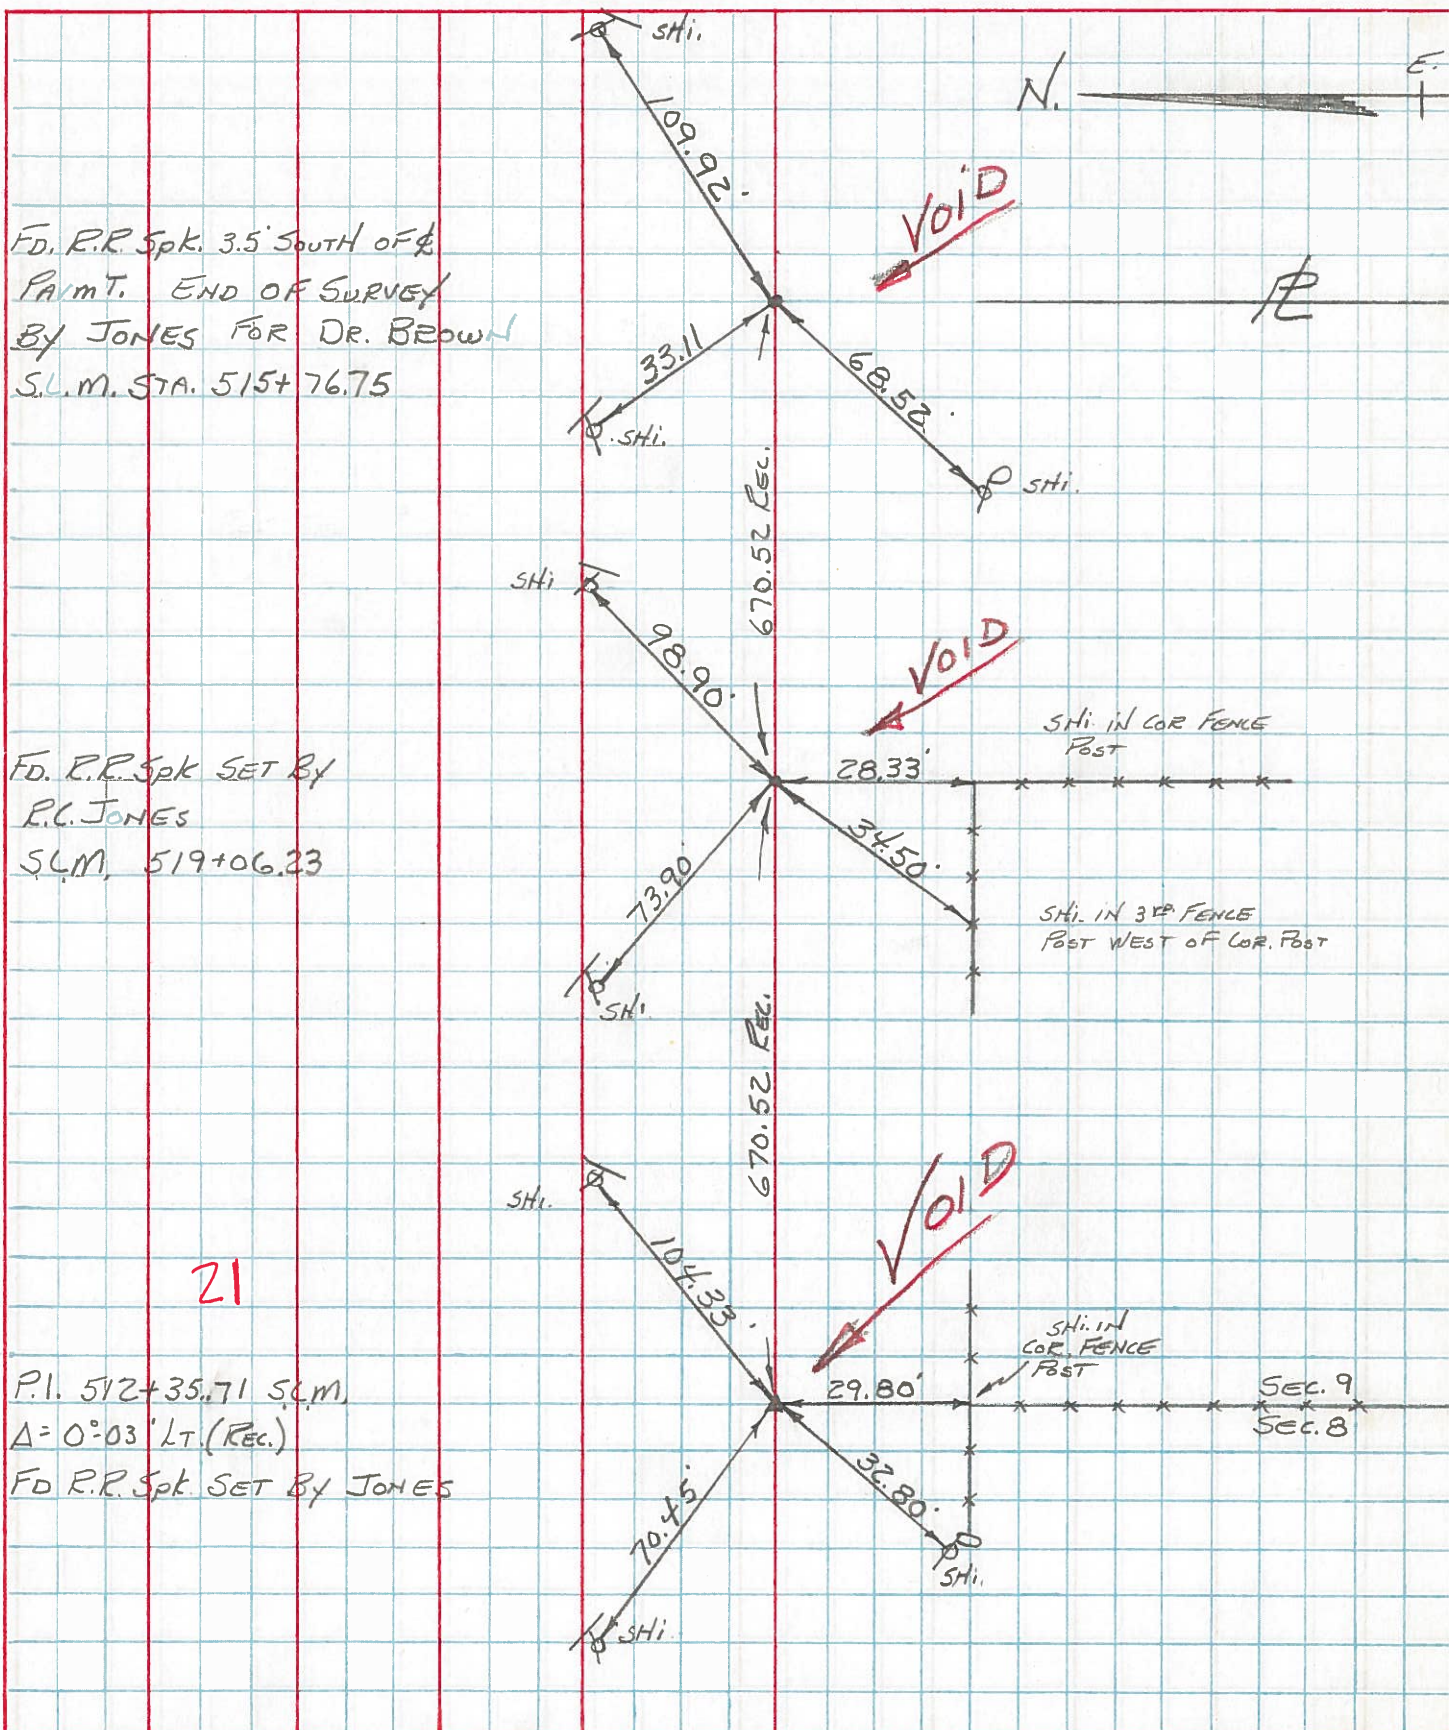 SHi.
N.
E.
109.92'
VOID
FD. R.R. Spk. 3.5' SOUTH OF ℄
PAVMT. END OF SURVEY
BY JONES FOR DR. BROWN
S.L.M. STA. 515+76.75
PL
33.11
68.52'
SHi.
SHi.
670.52 REC.
SHi
98.90'
VOID
SHi. IN COR FENCE
POST
28.33'
FD. R.R. Spk SET BY
R.C. JONES
SLM. 519+06.23
34.50'
73.90'
SHi. IN 3RD. FENCE
POST WEST OF COR. POST
SHi.
670.52 REC.
VOID
SHi.
104.33'
21
SHi. IN
COR. FENCE
POST
29.80'
SEC. 9
SEC. 8
P.I. 512+35.71 SLM.
Δ= 0°03' LT. (REC.)
FD R.R. Spk. SET BY JONES
32.80'
70.45'
SHi.
SHi